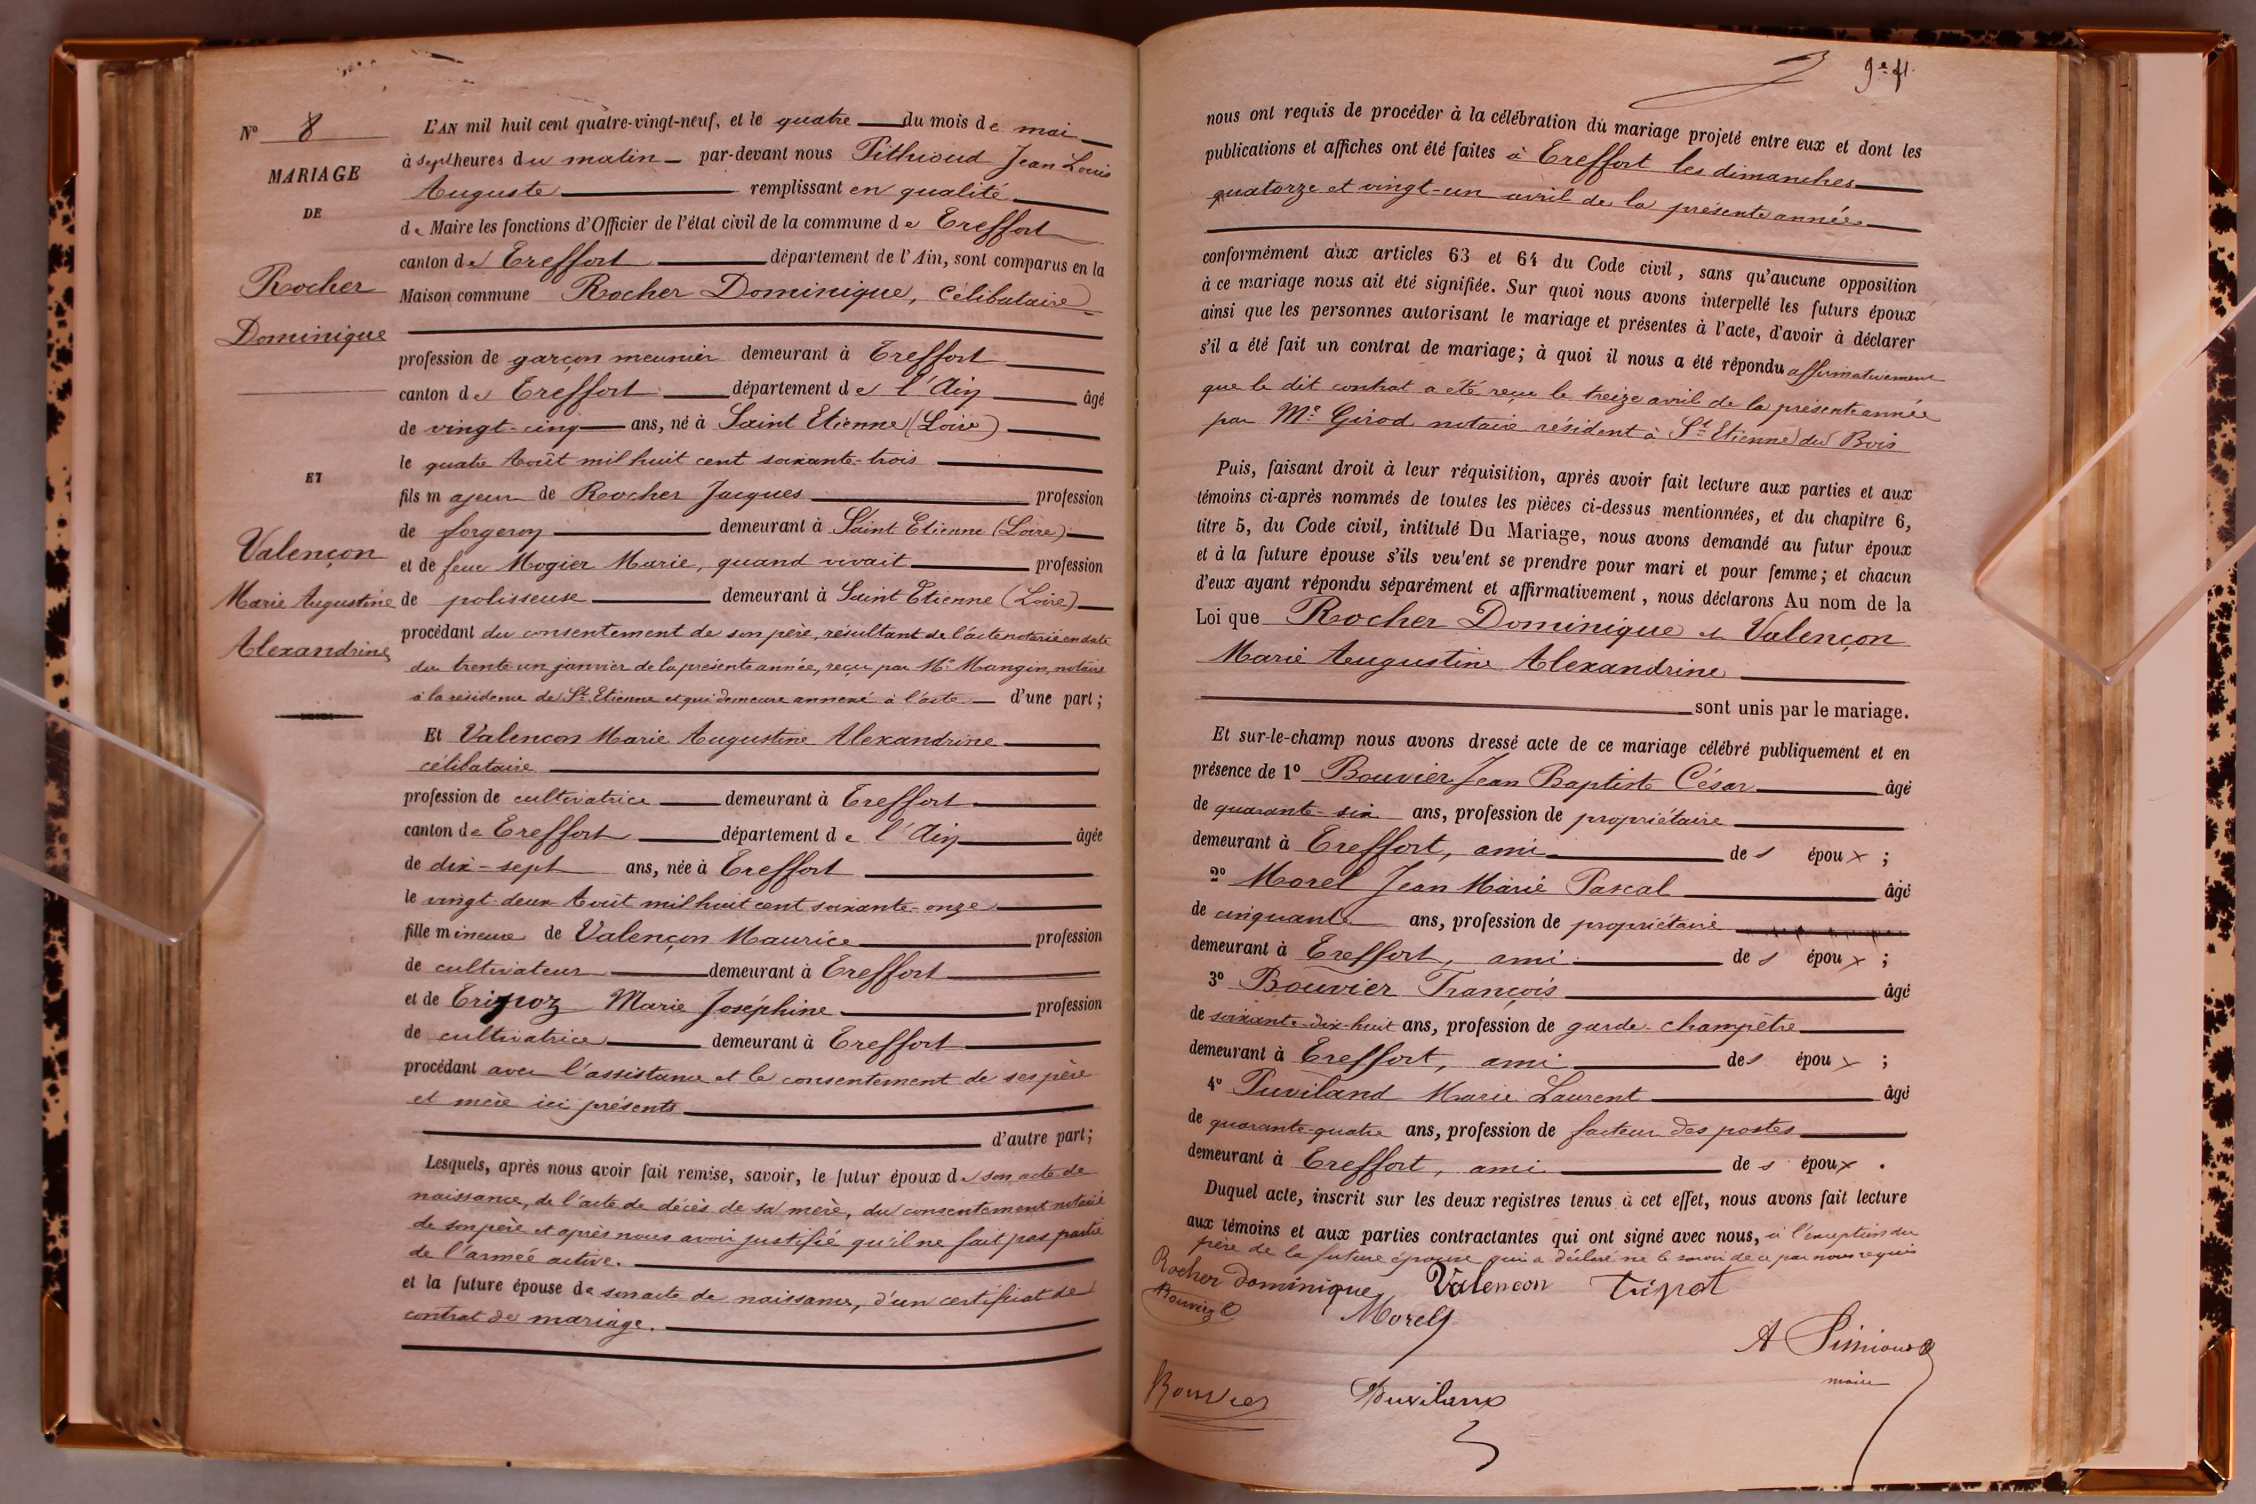 N° 8
MARIAGE
DE
Rocher
Dominique
ET
Valençon
Marie Augustine
Alexandrine
L'AN mil huit cent quatre-vingt-neuf, et le quatre du mois de mai
à sept heures du matin par-devant nous Pithioud Jean Louis
Auguste remplissant en qualité
de Maire les fonctions d'Officier de l'état civil de la commune de Treffort
canton de Treffort département de l'Ain, sont comparus en la
Maison commune Rocher Dominique, célibataire
profession de garçon meunier demeurant à Treffort
canton de Treffort département de l'Ain âgé
de vingt-cinq ans, né à Saint Etienne (Loire)
le quatre Août mil huit cent soixante-trois
fils majeur de Rocher Jacques profession
de forgeron demeurant à Saint Etienne (Loire)
et de feue Mogier Marie, quand vivait profession
de polisseuse demeurant à Saint Etienne (Loire)
procédant du consentement de son père, résultant de l'acte notarié en date
du trente un janvier de la présente année, reçu par Me Mangin, notaire
à la résidence de St Etienne et qui demeure annexé à l'acte d'une part;
Et Valencon Marie Augustine Alexandrine
célibataire
profession de cultivatrice demeurant à Treffort
canton de Treffort département de l'Ain âgée
de dix-sept ans, née à Treffort
le vingt-deux Août mil huit cent soixante-onze
fille mineure de Valençon Maurice profession
de cultivateur demeurant à Treffort
et de Tripoz Marie Joséphine profession
de cultivatrice demeurant à Treffort
procédant avec l'assistance et le consentement de ses père
et mère ici présents
d'autre part;
Lesquels, après nous avoir fait remise, savoir, le futur époux de son acte de
naissance, de l'acte de décès de sa mère, du consentement notarié
de son père et après nous avoir justifié qu'il ne fait pas partie
de l'armée active.
et la future épouse de son acte de naissance, d'un certificat de
contrat de mariage.
9e f.
nous ont requis de procéder à la célébration du mariage projeté entre eux et dont les
publications et affiches ont été faites à Treffort les dimanches
quatorze et vingt-un avril de la présente année
conformément aux articles 63 et 64 du Code civil, sans qu'aucune opposition
à ce mariage nous ait été signifiée. Sur quoi nous avons interpellé les futurs époux
ainsi que les personnes autorisant le mariage et présentes à l'acte, d'avoir à déclarer
s'il a été fait un contrat de mariage; à quoi il nous a été répondu affirmativement
que le dit contrat a été reçu le treize avril de la présente année
par Me Girod notaire résident à St Etienne du Bois
Puis, faisant droit à leur réquisition, après avoir fait lecture aux parties et aux
témoins ci-après nommés de toutes les pièces ci-dessus mentionnées, et du chapitre 6,
titre 5, du Code civil, intitulé Du Mariage, nous avons demandé au futur époux
et à la future épouse s'ils veu'ent se prendre pour mari et pour femme; et chacun
d'eux ayant répondu séparément et affirmativement, nous déclarons Au nom de la
Loi que Rocher Dominique et Valençon
Marie Augustine Alexandrine
sont unis par le mariage.
Et sur-le-champ nous avons dressé acte de ce mariage célébré publiquement et en
présence de 1° Bouvier Jean Baptiste César âgé
de quarante-six ans, profession de propriétaire
demeurant à Treffort, ami des époux;
2° Morel Jean Marie Pascal âgé
de cinquante ans, profession de propriétaire
demeurant à Treffort, ami des époux;
3° Bouvier François âgé
de soixante-dix-huit ans, profession de garde-champêtre
demeurant à Treffort, ami des époux;
4° Puviland Marie Laurent âgé
de quarante-quatre ans, profession de facteur des postes
demeurant à Treffort, ami des époux.
Duquel acte, inscrit sur les deux registres tenus à cet effet, nous avons fait lecture
aux témoins et aux parties contractantes qui ont signé avec nous, à l'exception du
père de la future épouse qui a déclaré ne le savoir de ce par nous requis
Rocher dominique Valencon
Morel
Bouvier
Puviland
maire